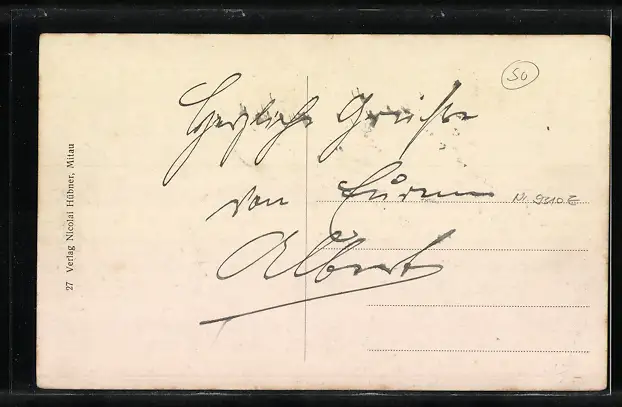 50
Herzliche Grüße
von Eurem
Albert
27 Verlag Nicolai Hübner, Mitau